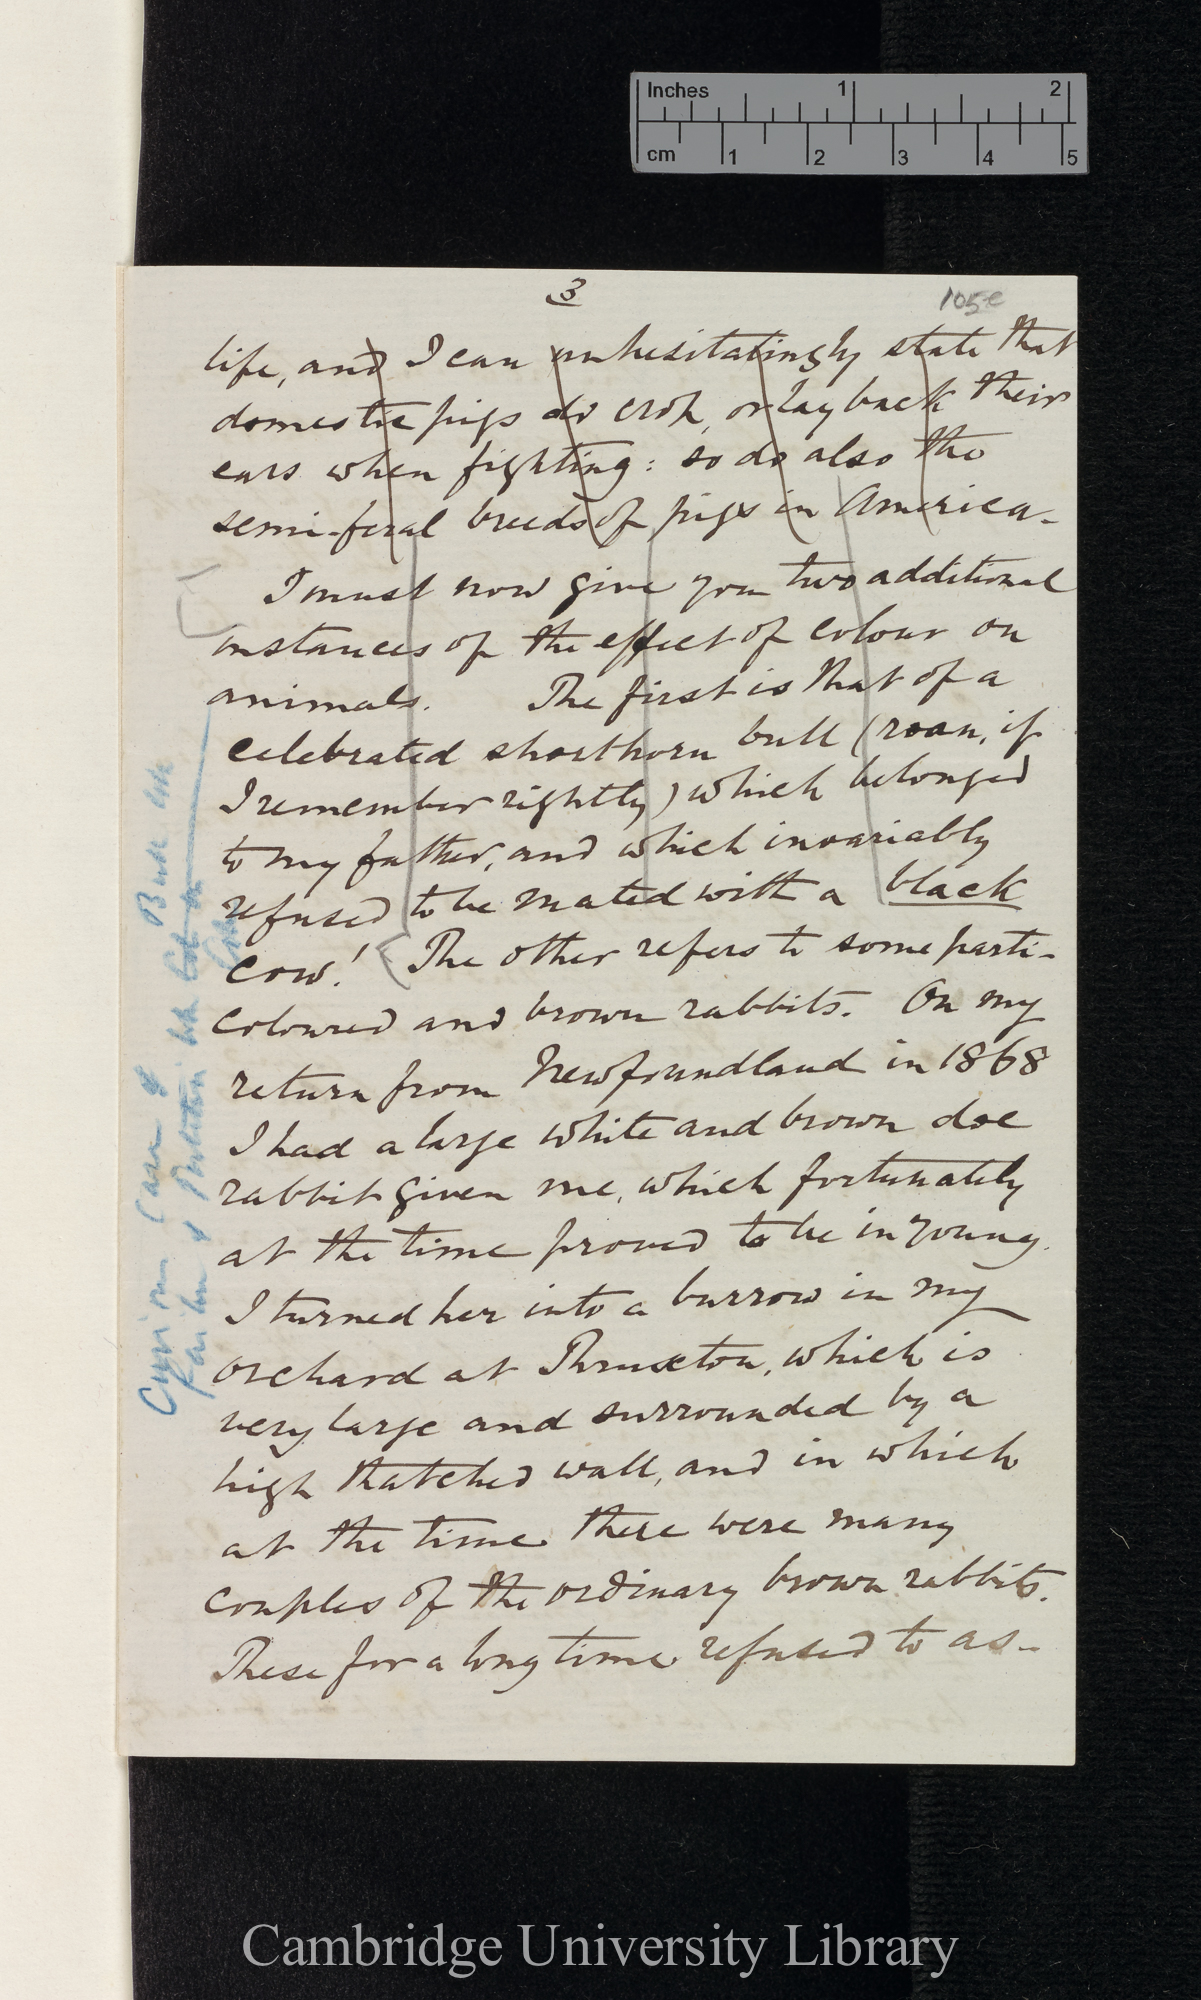 Inches 1 2
cm 1 2 3 4 5
3
105e
life, and I can unhesitatingly state that
domestic pigs do crop, or lay back their
ears when fighting: so do also the
semi-feral breeds of pigs in America.
I must now give you two additional
instances of the effect of colour on
animals. The first is that of a
celebrated shorthorn bull (roan, if
I remember rightly) which belonged
to my father, and which invariably
refused to be mated with a black
cow! The other refers to some parti-
coloured and brown rabbits. On my
return from Newfoundland in 1868
I had a large white and brown doe
rabbit given me, which fortunately
at the time proved to be in young.
I turned her into a burrow in my
orchard at Thruxton, which is
very large and surrounded by a
high thatched wall, and in which
at the time there were many
couples of the ordinary brown rabbits.
These for a long time refused to as-
Curious Case of
Cambridge University Library